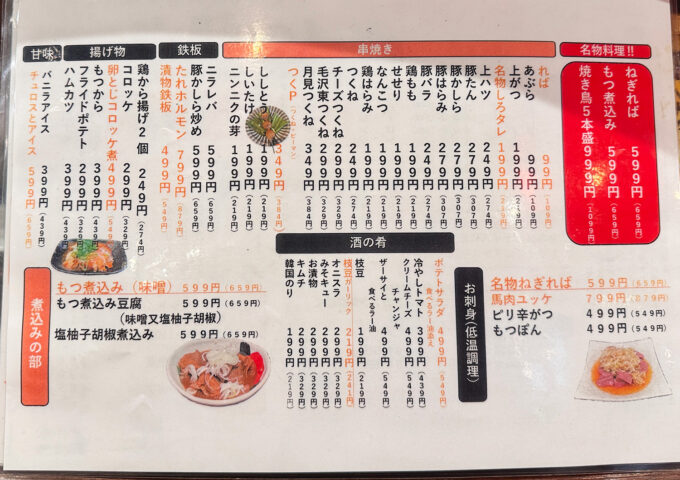 名物料理!!
ねぎれば 599円(659円)
もつ煮込み 599円(659円)
焼き鳥5本盛 999円(1099円)
串焼き
れば 99円(109円)
あぶら 99円(109円)
上がつ 199円(219円)
名物しろタレ
上ハツ 199円(219円)
豚たん 279円(307円)
豚かしら
豚はらみ 279円(307円)
豚バラ
鶏もも
せせり
なんこつ
鶏はらみ
つくね
チーズつくね 299円(329円)
毛沢東つくね 299円(329円)
月見つくね 349円(384円)
つくP(つくねピーマン) 349円(384円)
ししとう 199円(219円)
しいたけ 199円(219円)
ニンニクの芽 199円(219円)
鉄板
ニラレバ 599円(659円)
豚かしら炒め 599円(659円)
たれホルモン 799円(879円)
漬物鉄板 499円(549円)
揚げ物
鶏から揚げ2個 249円(274円)
コロッケ 299円(329円)
卵とじコロッケ煮 499円(549円)
もつから 399円(439円)
フライドポテト 299円(329円)
ハムカツ 399円(439円)
甘味
バニラアイス 399円(439円)
チュロスとアイス 599円(659円)
煮込みの部
もつ煮込み(味噌) 599円(659円)
もつ煮込み豆腐 599円(659円)
(味噌又塩柚子胡椒)
塩柚子胡椒煮込み 599円(659円)
酒の肴
ポテトサラダ 食べるラー油添え 499円(549円)
冷やしトマト 399円(439円)
クリームチーズ チャンジャ 499円(549円)
ザーサイと 食べるラー油 499円(549円)
枝豆 199円(219円)
枝豆ガーリック 219円(241円)
オニスラ 299円(329円)
みそキュー 299円(329円)
お漬物 299円(329円)
キムチ 299円(329円)
韓国のり 199円(219円)
お刺身(低温調理)
名物ねぎれば 599円(659円)
馬肉ユッケ 799円(879円)
ピリ辛がつ 499円(549円)
もつぽん 499円(549円)